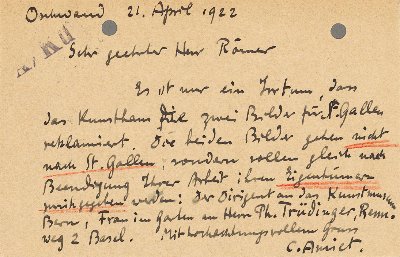 Oschwand 21. April 1922
Sehr geehrter Herr Römer
Es ist nur ein Irrtum, dass
das Kunsthaus die zwei Bilder für St. Gallen
reklamiert. Die beiden Bilder gehen nicht
nach St. Gallen, sondern sollen gleich nach
Beendigung Ihrer Arbeit ihren Eigentümern
zurückgegeben werden: Der Dirigent an das Kunstmuseum
Bern, Frau im Garten an Herr Ph. Trüdinger, Renn-
weg 2 Basel. Mit hochachtungsvollem Gruss
C. Amiet.